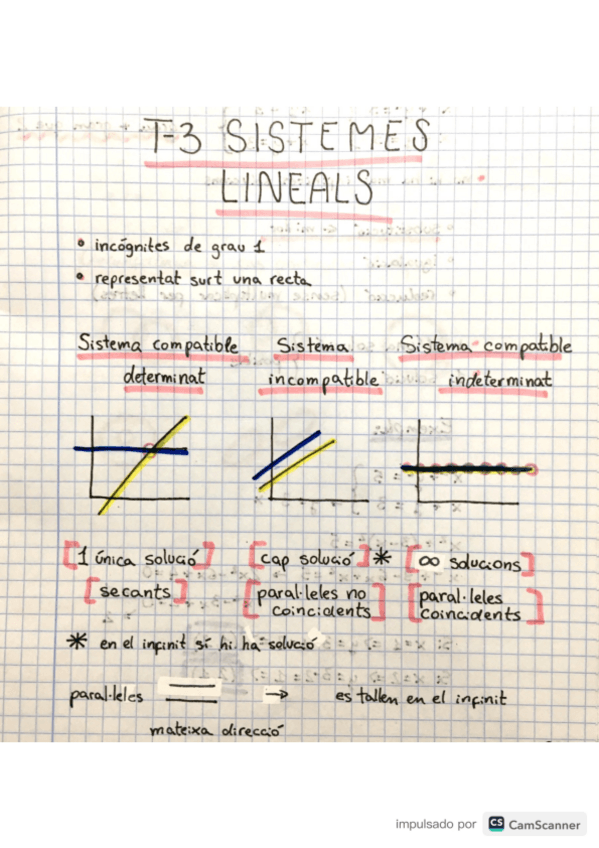 T-3 SISTEMES
LINEALS
• incógnites de grau 1
• representat surt una recta
Sistema compatible
determinat
Sistema
incompatible
Sistema compatible
indeterminat
[1 única solució]
[secants]
[cap solució]*
[paral·leles no
coincidents]
[∞ solucions]
[paral·leles
coincidents]
* en el infinit sí hi ha solució
paral·leles → es tallen en el infinit
mateixa direcció
impulsado por CS CamScanner